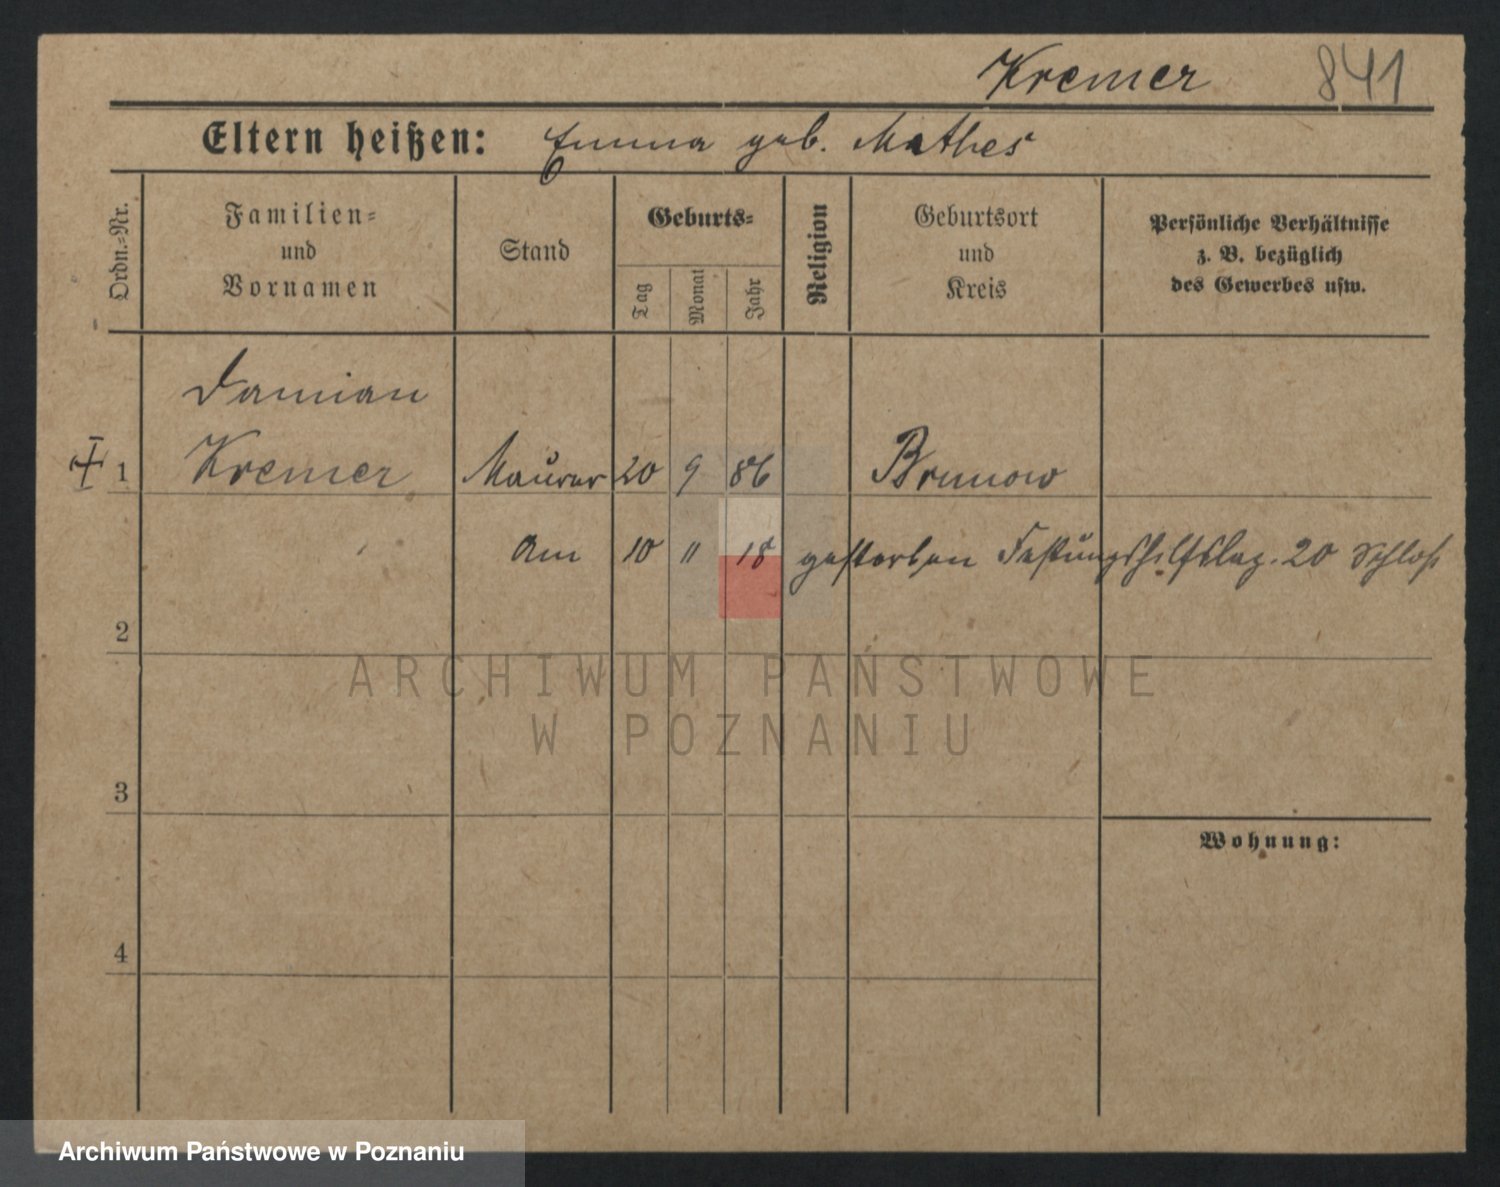 Kremer 841
Eltern heißen: Emma geb. Mathes
Ordn.-Nr.
Familien-
und
Vornamen
Stand
Geburts-
Tag
Monat
Jahr
Religion
Geburtsort
und
Kreis
Persönliche Verhältnisse
z. B. bezüglich
des Gewerbes usw.
Damian
1 Kremer Maurer 20 9 86 Brunow
Am 10 11 18 gestorben Festungshilfslaz. 20 Schloß
2
ARCHIWUM PAŃSTWOWE
W POZNANIU
3
Wohnung:
4
Archiwum Państwowe w Poznaniu